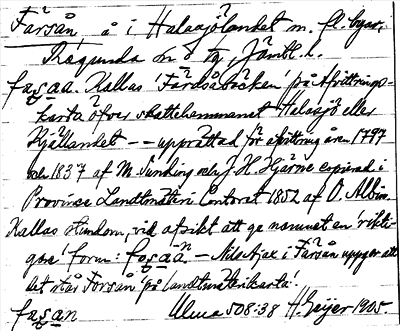 Färsån, å i Halasjölandet m. fl. byar,
Ragunda sn o tg, Jämtl. l.
fa̤ṣaa. Kallas 'Färdsåbäcken' på Afvittrings-
karta öfver skattehemmanet Halasjö eller
Kjällandet -- upprättad för afvittring åren 1797
och 1837 af M. Nunding och J. H. Hjärne copierad i
Province Landtmäteri Contoret 1852 af O. Albin.
Kallas stundom, vid afsikt att ge namnet en 'rikti-
gare' form: fo̤ṣaan. — Nils Ajax i Färsån uppger att
det står Forsån på landtmäterikarta.
fa̤ṣan Ulma 508:38 H. Geijer 1905.